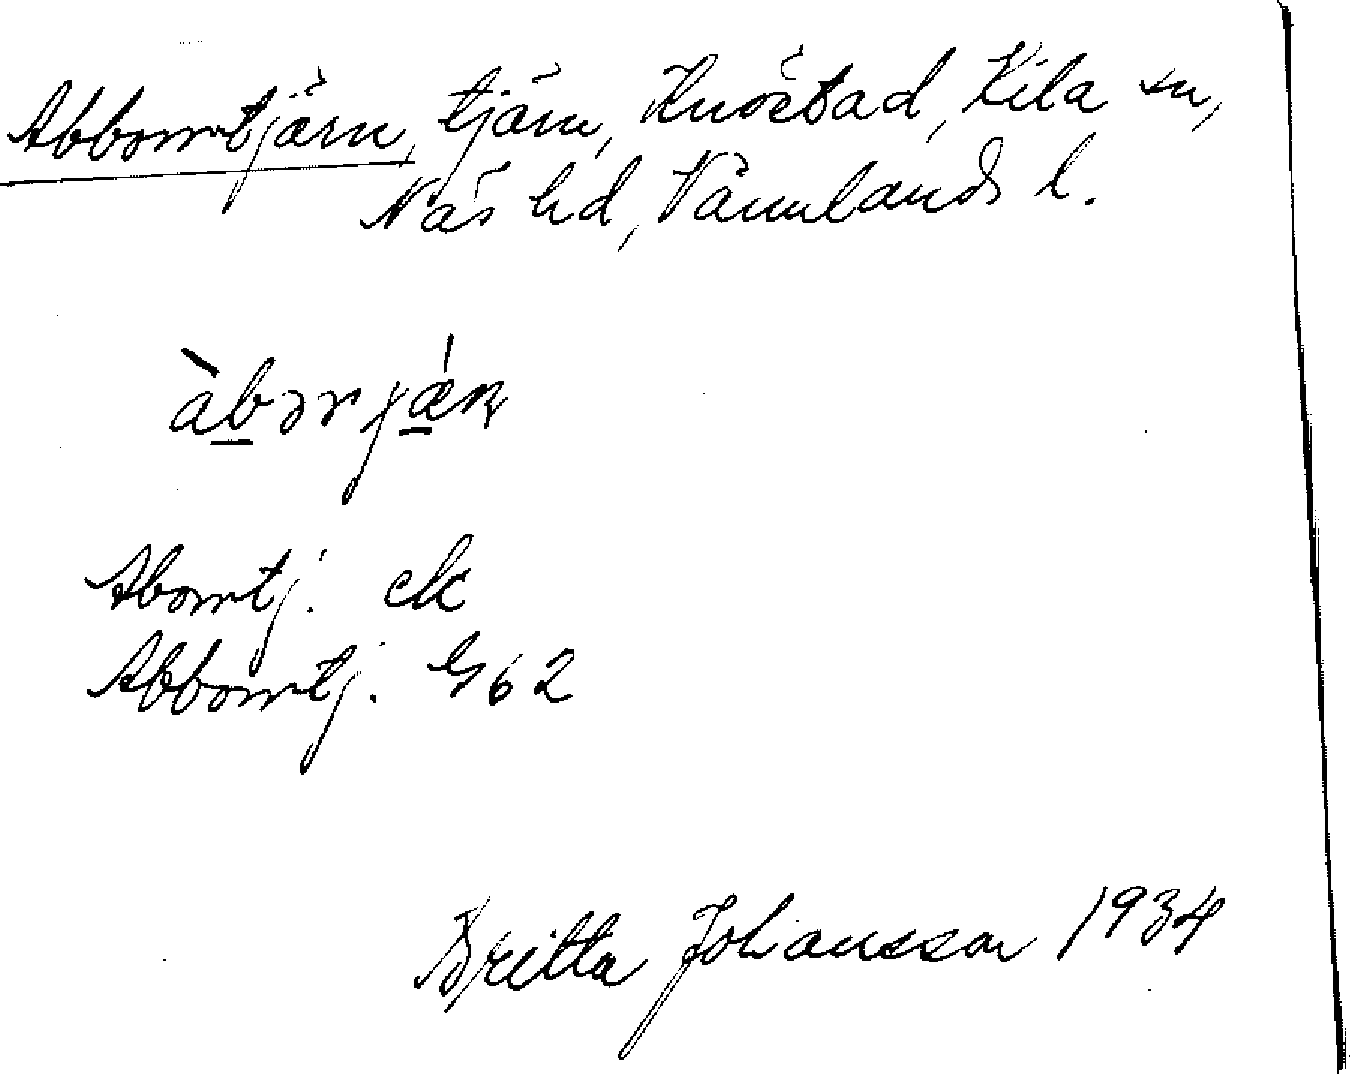 Abborrtjärn, tjärn, Knöstad, Kila sn,
Näs hd, Värmlands l.
àbərjǽɳ
Aborrtj. ek
Abborrtj. G62
Britta Johansson 1934